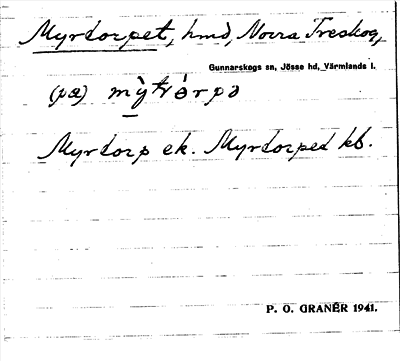 Myrtorpet, hmd, Norra Treskog,
Gunnarskogs sn, Jösse hd, Värmlands l.
(pæ)
Myrtorp ek. Myrtorped kb.
P. O. GRANÉR 1941.